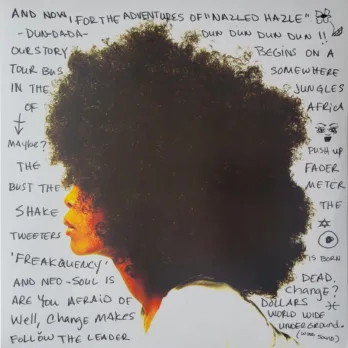 AND NOW, FOR THE ADVENTURES OF "NAZLED HAZLE"
-DUN-DADA- DUN DUN DUN DUN !!
OUR STORY BEGINS ON A
TOUR BUS SOMEWHERE
IN THE JUNGLES
OF AFRICA
MAYBE? PUSH UP
THE FADER
BUST THE METER
SHAKE THE
TWEETERS
'FREAKQUENCY' IS BORN
AND NEO-SOUL IS DEAD.
ARE YOU AFRAID OF Change?
Well, CHANGE MAKES DOLLARS
FOLLOW THE LEADER WORLD WIDE
UNDERGROUND.
(WIND SOUND)